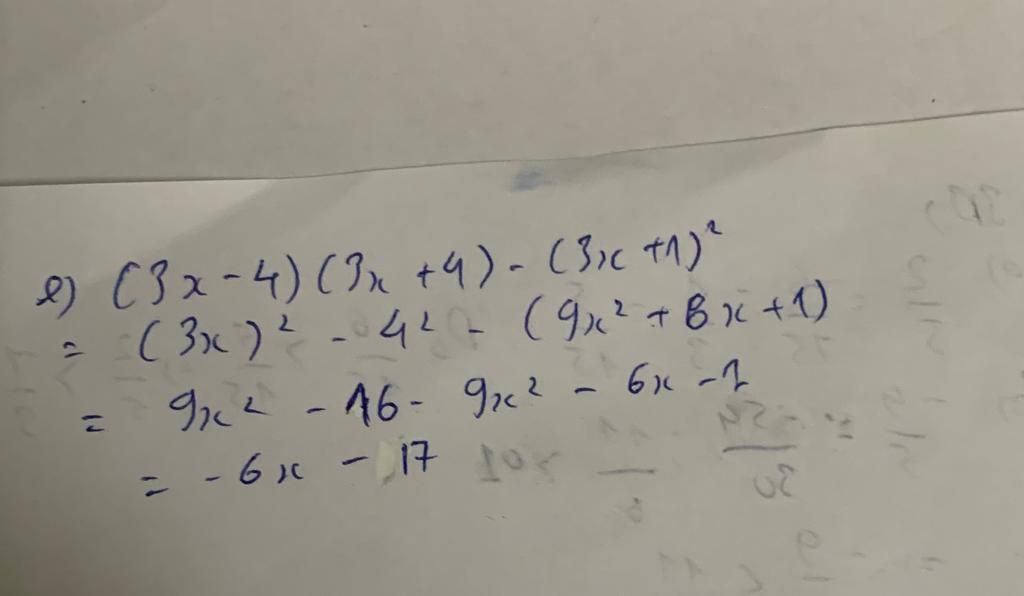 e) (3x - 4)(3x + 4) - (3x + 1)²
= (3x)² - 4² - (9x² + 6x + 1)
= 9x² - 16 - 9x² - 6x - 1
= - 6x - 17